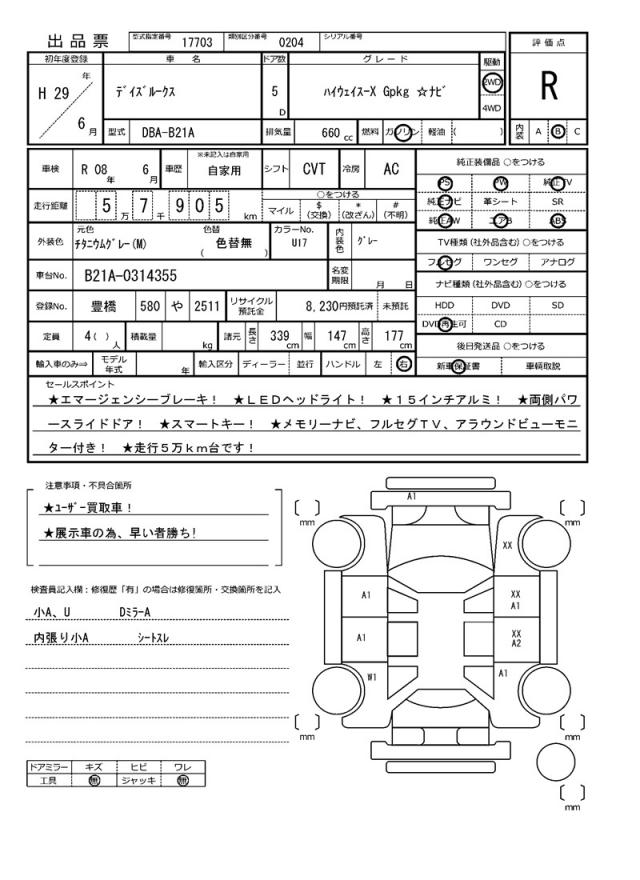 出品票 型式指定番号 17703 類別区分番号 0204 シリアル番号
評価点
R
内装 A B C
初年度登録 車名 ドア数 グレード 駆動
H 29 年 6 月 ﾃﾞｲｽﾞﾙｰｸｽ 5 D ﾊｲｳｪｲｽｰX Gpkg ☆ﾅﾋﾞ 2WD 4WD
型式 DBA-B21A 排気量 660 cc 燃料 ガソリン 軽油 ( )
車検 R 08 年 6 月 車歴 ※未記入は自家用 自家用 シフト CVT 冷房 AC
走行距離 5 万 7 千 9 0 5 km ○をつける マイル $(交換) *(改ざん) #(不明)
外装色 元色 ﾁﾀﾆｳﾑｸﾞﾚｰ(M) 色替 色替無 ( ) カラーNo. U17 内装色 ｸﾞﾚｰ
車台No. B21A-0314355 名変期限 月 日
登録No. 豊橋 580 や 2511 リサイクル預託金 8,230円預託済 未預託
定員 4( ) 人 積載量 kg 諸元 長さ 339 cm 幅 147 cm 高さ 177 cm
輸入車のみ⇒ モデル年式 年 輸入区分 ディーラー 並行 ハンドル 左 右
純正装備品 ○をつける
PS PW 純正TV
純正ナビ 革シート SR
純正AW エアB ABS
TV種類(社外品含む) ○をつける
フルセグ ワンセグ アナログ
ナビ種類(社外品含む) ○をつける
HDD DVD SD
DVD再生可 CD
後日発送品 ○をつける
新車保証書 車輌取説
セールスポイント
★エマージェンシーブレーキ! ★LEDヘッドライト! ★15インチアルミ! ★両側パワ
ースライドドア! ★スマートキー! ★メモリーナビ、フルセグTV、アラウンドビューモニ
ター付き! ★走行5万km台です!
注意事項・不具合箇所
★ﾕｰｻﾞｰ買取車!
★展示車の為、早い者勝ち!
検査員記入欄:修復歴「有」の場合は修復箇所・交換箇所を記入
小A、U DﾐﾗｰA
内張り小A ｼｰﾄｽﾚ
ドアミラー キズ ヒビ ワレ
工具 無 ジャッキ 無
A1
mm mm
XX
A1 XX A1
A1 XX A2
W1 A1
mm mm
mm